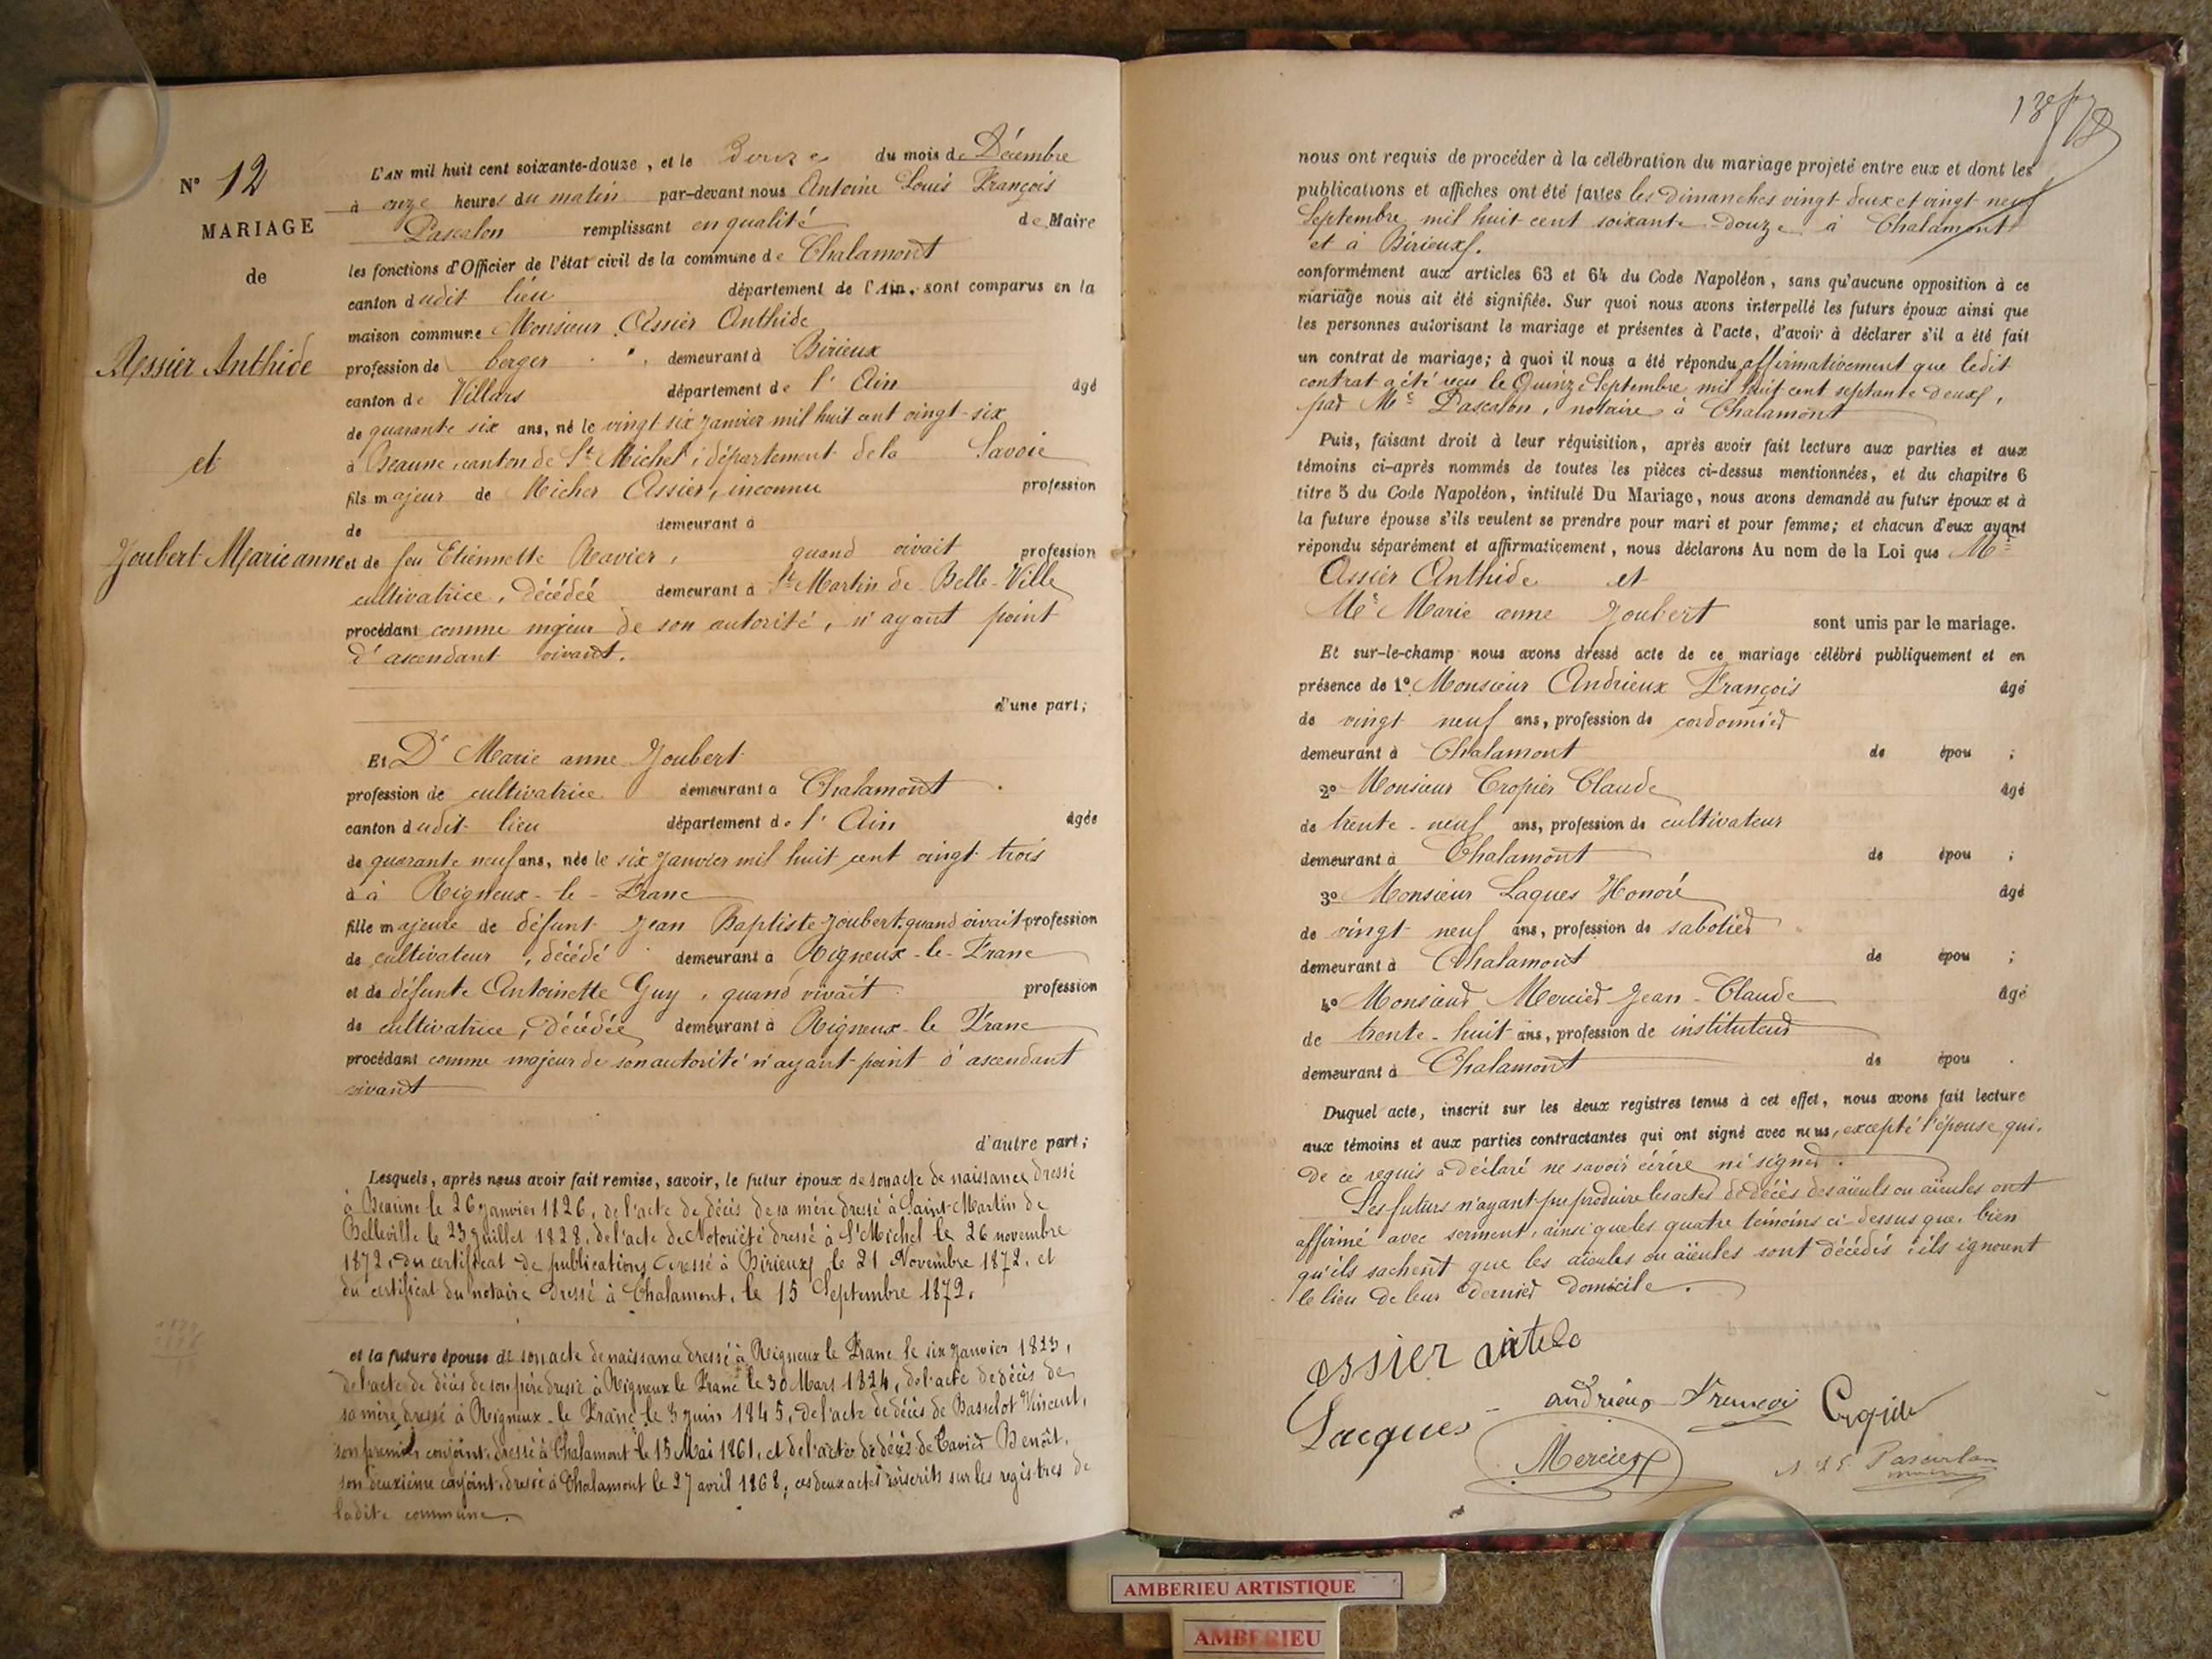 N° 12
MARIAGE
de
Assier Anthide
et
Joubert Marie anne
L'AN mil huit cent soixante-douze, et le Douze du mois de Décembre
à onze heures du matin par-devant nous Antoine Louis François
Pascalon remplissant en qualité de Maire
les fonctions d'Officier de l'état civil de la commune de Chalamont
canton dudit lieu département de l'Ain, sont comparus en la
maison commune Monsieur Assier Anthide
profession de berger, demeurant à Birieux
canton de Villars département de l'Ain âgé
de quarante six ans, né le vingt six Janvier mil huit cent vingt-six
à Beaune, canton de St Michel, département de la Savoie
fils majeur de Michel Assier, inconnu profession
de demeurant à
et de feu Etiennette Ravier, quand vivait profession
cultivatrice, décédée demeurant à St Martin de Belle-Ville
procédant comme majeur de son autorité, n'ayant point
d'ascendant vivant.
d'une part;
Et De Marie anne Joubert
profession de cultivatrice demeurant à Chalamont
canton dudit lieu département de l'Ain âgée
de quarante neuf ans, née le six Janvier mil huit cent vingt trois
à à Rigneux-le-Franc
fille majeure de défunt Jean Baptiste Joubert, quand vivait profession
de cultivateur, décédé demeurant à Rigneux-le-Franc
et de défunte Antoinette Guy, quand vivait profession
de cultivatrice, décédée demeurant à Rigneux-le Franc
procédant comme majeur de son autorité n'ayant point d'ascendant
vivant
d'autre part;
Lesquels, après nous avoir fait remise, savoir, le futur époux de son acte de naissance dressé
à Beaune le 26 Janvier 1826, de l'acte de décès de sa mère dressé à Saint-Martin de
Belleville le 23 Juillet 1828, de l'acte de Notoriété dressé à St Michel le 26 novembre
1872, du certificat de publications dressé à Birieux le 21 Novembre 1872, et
du certificat du notaire dressé à Chalamont, le 15 Septembre 1872.
et la future épouse de son acte de naissance dressé à Rigneux le Franc le six Janvier 1823,
de l'acte de décès de son père dressé à Rigneux le Franc le 30 Mars 1824, de l'acte de décès de
sa mère dressé à Rigneux-le Franc le 3 Juin 1845, de l'acte de décès de Basselot Vincent,
son premier conjoint, dressé à Chalamont le 15 Mai 1861, et de l'acte de décès de Tavier Benoît,
son deuxième conjoint, dressé à Chalamont le 27 avril 1868, ces deux actes inscrits sur les registres de
ladite commune.
nous ont requis de procéder à la célébration du mariage projeté entre eux et dont les
publications et affiches ont été faites les dimanches vingt deux et vingt neuf
Septembre mil huit cent soixante-douze à Chalamont
et à Birieux.
conformément aux articles 63 et 64 du Code Napoléon, sans qu'aucune opposition à ce
mariage nous ait été signifiée. Sur quoi nous avons interpellé les futurs époux ainsi que
les personnes autorisant le mariage et présentes à l'acte, d'avoir à déclarer s'il a été fait
un contrat de mariage; à quoi il nous a été répondu affirmativement que ledit
contrat a été reçu le Quinze Septembre mil huit cent septante deux,
par Me Pascalon, notaire à Chalamont
Puis, faisant droit à leur réquisition, après avoir fait lecture aux parties et aux
témoins ci-après nommés de toutes les pièces ci-dessus mentionnées, et du chapitre 6
titre 5 du Code Napoléon, intitulé Du Mariage, nous avons demandé au futur époux et à
la future épouse s'ils veulent se prendre pour mari et pour femme; et chacun d'eux ayant
répondu séparément et affirmativement, nous déclarons Au nom de la Loi que Mr
Assier Anthide et
Me Marie anne Joubert sont unis par le mariage.
Et sur-le-champ nous avons dressé acte de ce mariage célébré publiquement et en
présence de 1° Monsieur Andrieux François âgé
de vingt neuf ans, profession de cordonnier
demeurant à Chalamont de épou ;
2° Monsieur Cropier Claude âgé
de trente-neuf ans, profession de cultivateur
demeurant à Chalamont de épou ;
3° Monsieur Laques Honoré âgé
de vingt neuf ans, profession de sabotier
demeurant à Chalamont de épou ;
4° Monsieur Mercier Jean-Claude âgé
de trente-huit ans, profession de instituteur
demeurant à Chalamont de épou .
Duquel acte, inscrit sur les deux registres tenus à cet effet, nous avons fait lecture
aux témoins et aux parties contractantes qui ont signé avec nous, excepté l'épouse qui,
de ce requis a déclaré ne savoir écrire ni signer.
Les futurs n'ayant pu produire les actes de décès des aïeuls ou aïeules ont
affirmé avec serment, ainsi que les quatre témoins ci-dessus que, bien
qu'ils sachent que les aïeuls ou aïeules sont décédés, ils ignorent
le lieu de leur dernier domicile.
assier
Lacques andrieux
Mercier Pascalon
AMBERIEU ARTISTIQUE
AMBERIEU